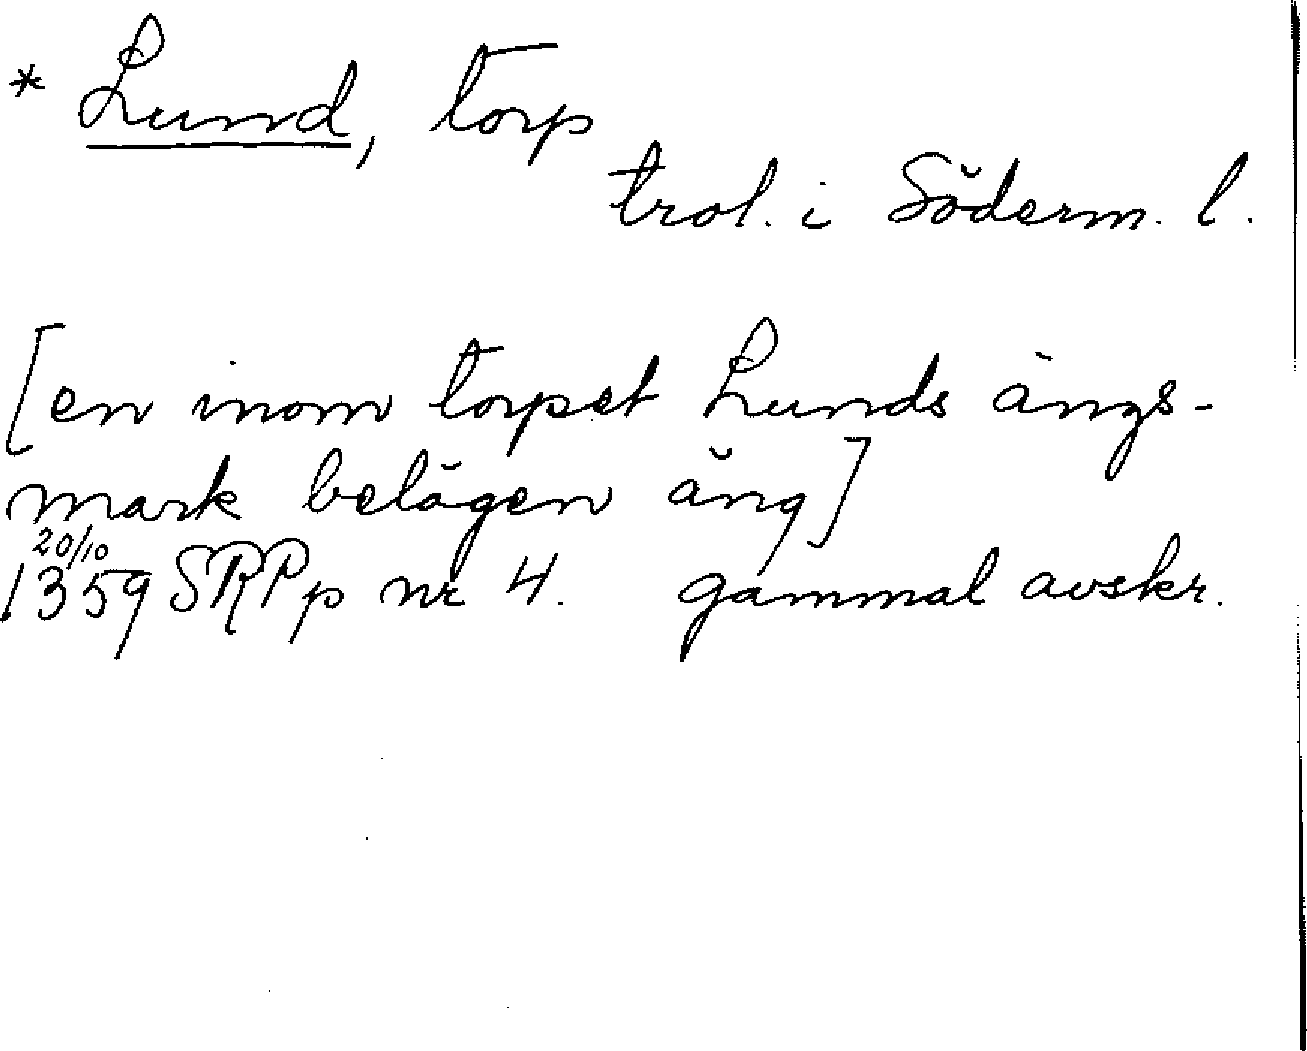 * Lund, torp
trol. i Söderm. l.
[en inom torpet Lunds ängs-
mark belägen äng]
20/10
1359 SRPp nr 4. gammal avskr.